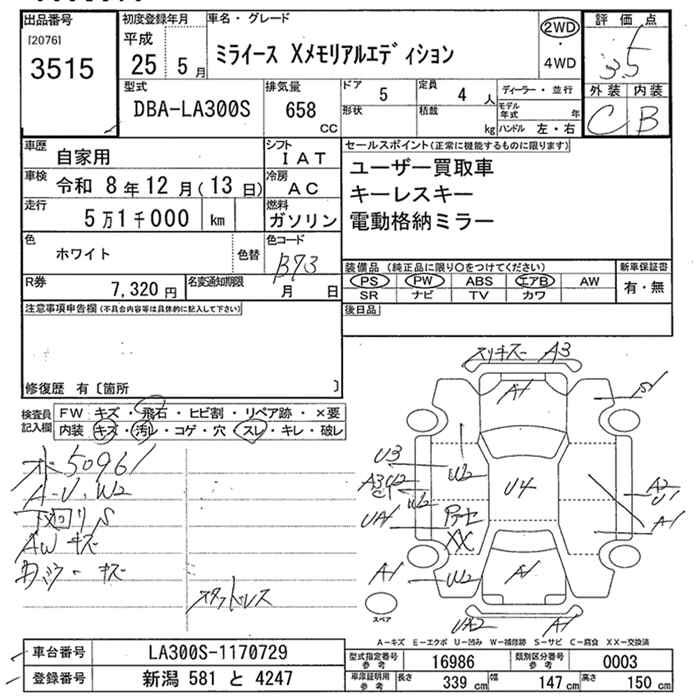 出品番号
[2076]
3515
初度登録年月
平成
25 5月
車名・グレード
ミライース Xメモリアルエディション
2WD
・
4WD
評価点
3.5
外装 内装
C B
型式
DBA-LA300S
排気量
658
CC
ドア
5
定員
4 人
形状
積載
kg
ディーラー・並行
モデル年式 年
ハンドル 左・右
車歴
自家用
シフト
IAT
車検
令和 8年12月(13日)
冷房
AC
走行
5万1千000 km
燃料
ガソリン
色
ホワイト
色替
色コード
B73
R券
7,320 円
名変通知期限
月 日
セールスポイント(正常に機能するものに限ります)
ユーザー買取車
キーレスキー
電動格納ミラー
装備品 (純正品に限り○をつけてください)
PS PW ABS エアB AW
SR ナビ TV カワ
新車保証書
有・無
後日品
注意事項申告欄(不具合内容等は具体的に記入して下さい)
修復歴 有〔箇所 〕
検査員記入欄
FW キズ・飛石・ヒビ割・リペア跡・×要
内装 キズ・汚レ・コゲ・穴・スレ・キレ・破レ
50961
A-U、W2
下回りS
AWキズ
スタッドレス
スリキズ A3
A1
S1
U3
A3 U2
C1
W2
W2
UA1
U4
XX
A2
U1
A1
A1
W2
A1
UA2
A1
スペア
A-キズ E-エクボ U-凹み W-補修跡 S-サビ C-腐食 XX-交換済
車台番号
LA300S-1170729
登録番号
新潟 581 と 4247
型式指定番号
参考
16986
類別区分番号
参考
0003
車庫証明用
参考
長さ 339 cm
幅 147 cm
高さ 150 cm